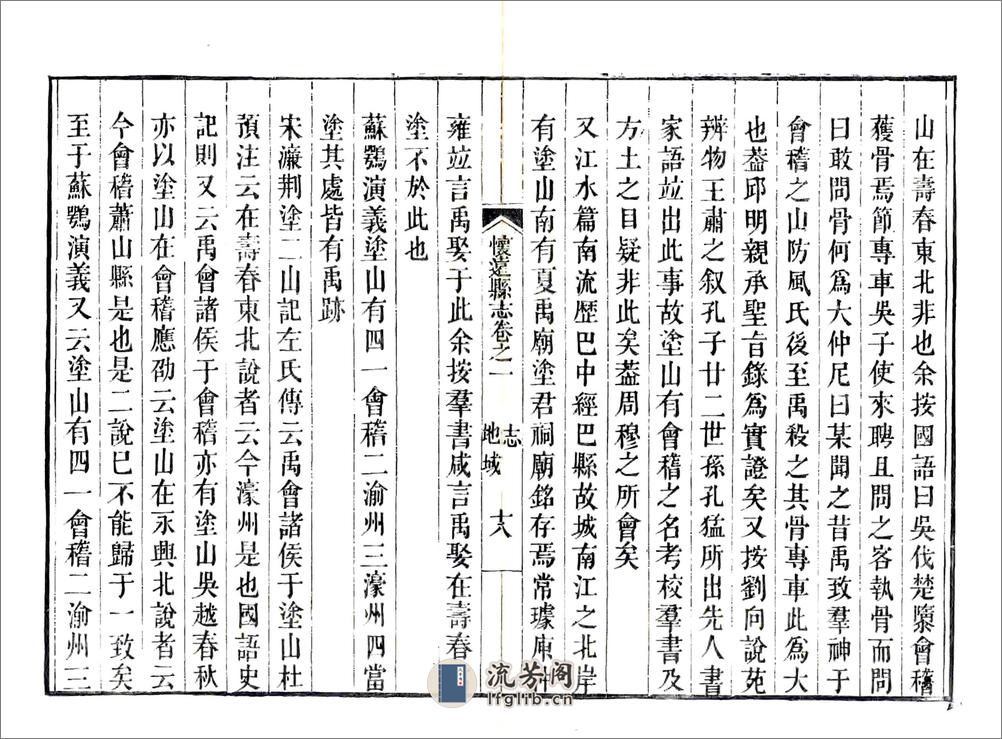 山在壽春東北非也余按國語曰吳伐楚隳會稽
獲骨焉節專車吳子使來聘且問之客執骨而問
曰敢問骨何爲大仲尼曰某聞之昔禹致羣神于
會稽之山防風氏後至禹殺之其骨專車此爲大
也葢邱明親承聖旨錄爲實證矣又按劉向說苑
辨物王肅之叙孔子廿二世孫孔猛所出先人書
家語竝出此事故塗山有會稽之名考校羣書及
方土之目疑非此矣葢周穆之所會矣
又江水篇南流歷巴中經巴縣故城南江之北岸
有塗山南有夏禹廟塗君祠廟銘存焉常璩庾仲
雍竝言禹娶于此余按羣書咸言禹娶在壽春
塗不於此也
蘇鶚演義塗山有四一會稽二渝州三濠州四當
塗其處皆有禹跡
宋濂荆塗二山記左氏傳云禹會諸侯于塗山杜
預注云在壽春東北說者云今濠州是也國語史
記則又云禹會諸侯于會稽亦有塗山吳越春秋
亦以塗山在會稽應劭云塗山在永興北說者云
今會稽蕭山縣是也是二說巳不能歸于一致矣
至于蘇鶚演義又云塗山有四一會稽二渝州三
懷遠縣志卷之一
地域志
十八
流芳阁
lfglib.cn